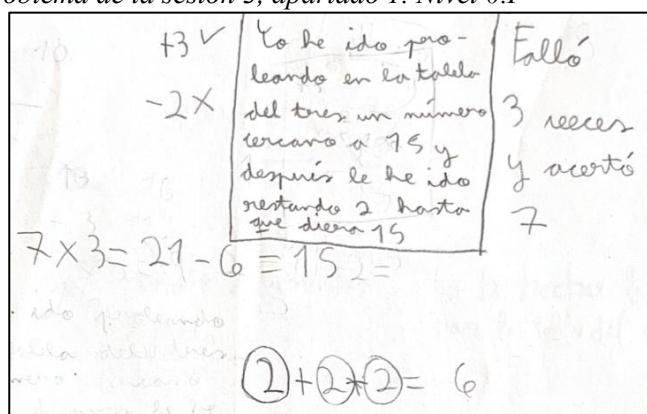 problema de la sesión 3, apartado 1. Nivel 6.1
+3 ✓
-2 ×
Yo he ido pro-
leando en la tabla
del tres un número
cercano a 15 y
después le he ido
restando 2 hasta
que diera 15
Falló
3 veces
y acertó
7
7 × 3 = 21 - 6 = 15
2 + 2 + 2 = 6